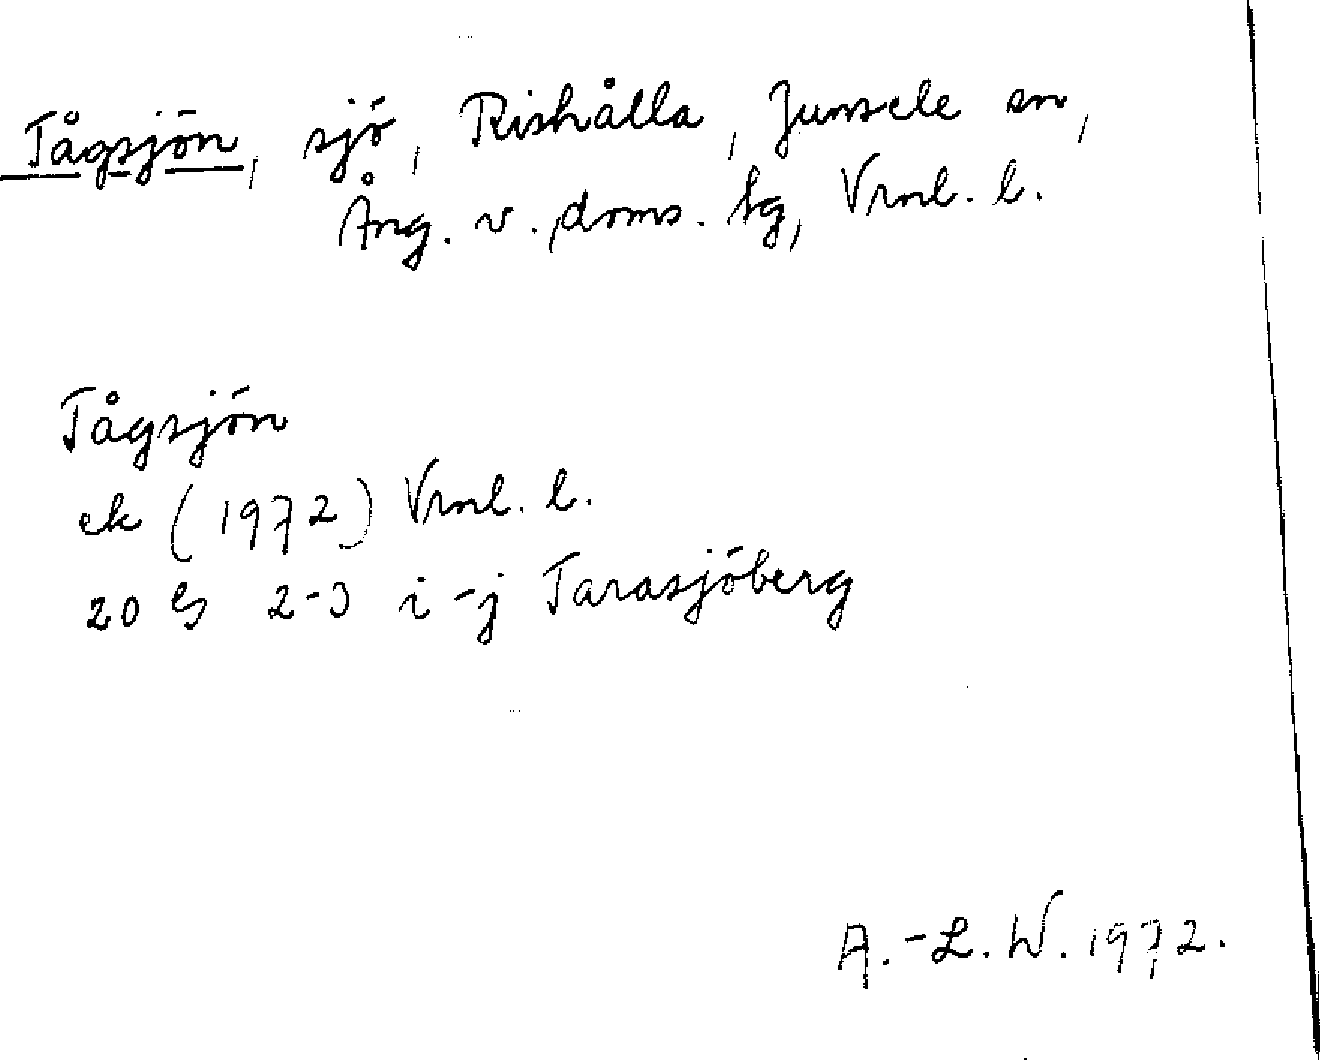 Tågsjön, sjö, Rishålla, Junsele sn,
Ång. v. doms. tg, Vrnl. l.
Tågsjön
ek (1972) Vrnl. l.
20 G 2-3 i-j Tarasjöberg
A.-L. W. 1972.